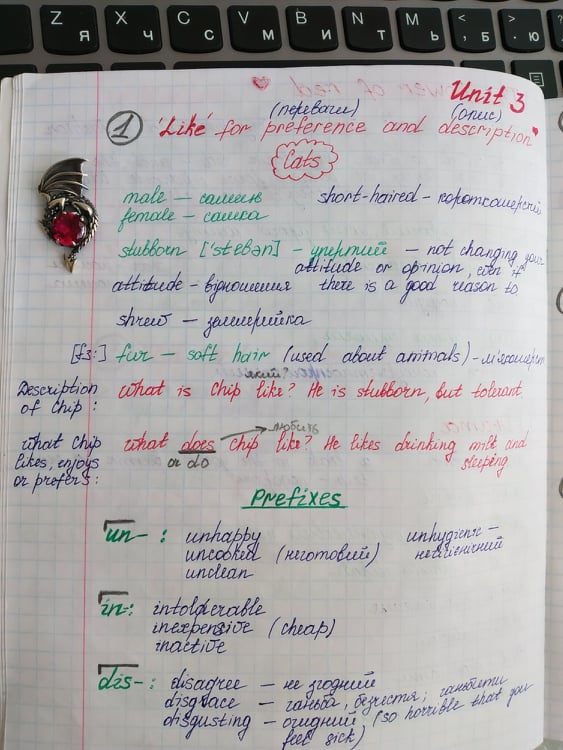 Z Я
X Ч
C С
V М
B И
N Т
M Ь
< , Б
> . Ю
Unit 3
(переваги) (опис)
1 'Like' for preference and description
Cats
male — самець short-haired – короткошерстий
female — самка
stubborn ['stʌbən] – упертий – not changing your
attitude or opinion, even if
attitude – відношення there is a good reason to
shrew — землерийка
[fɜ:] fur — soft hair (used about animals) –
Description of Chip: What is Chip like? He is stubborn, but tolerant.
який?
любить
What Chip likes, enjoys or prefers: What does Chip like? He likes drinking milk and sleeping
or do
Prefixes
un- : unhappy unhygienic –
uncooked (неготовий) негігієнічний
unclean
in- : intolerable
inexpensive (cheap)
inactive
dis- : disagree — не згодний
disgrace — ганьба, безчестя; ганьбити
disgusting – огидний (so horrible that you
feel sick)